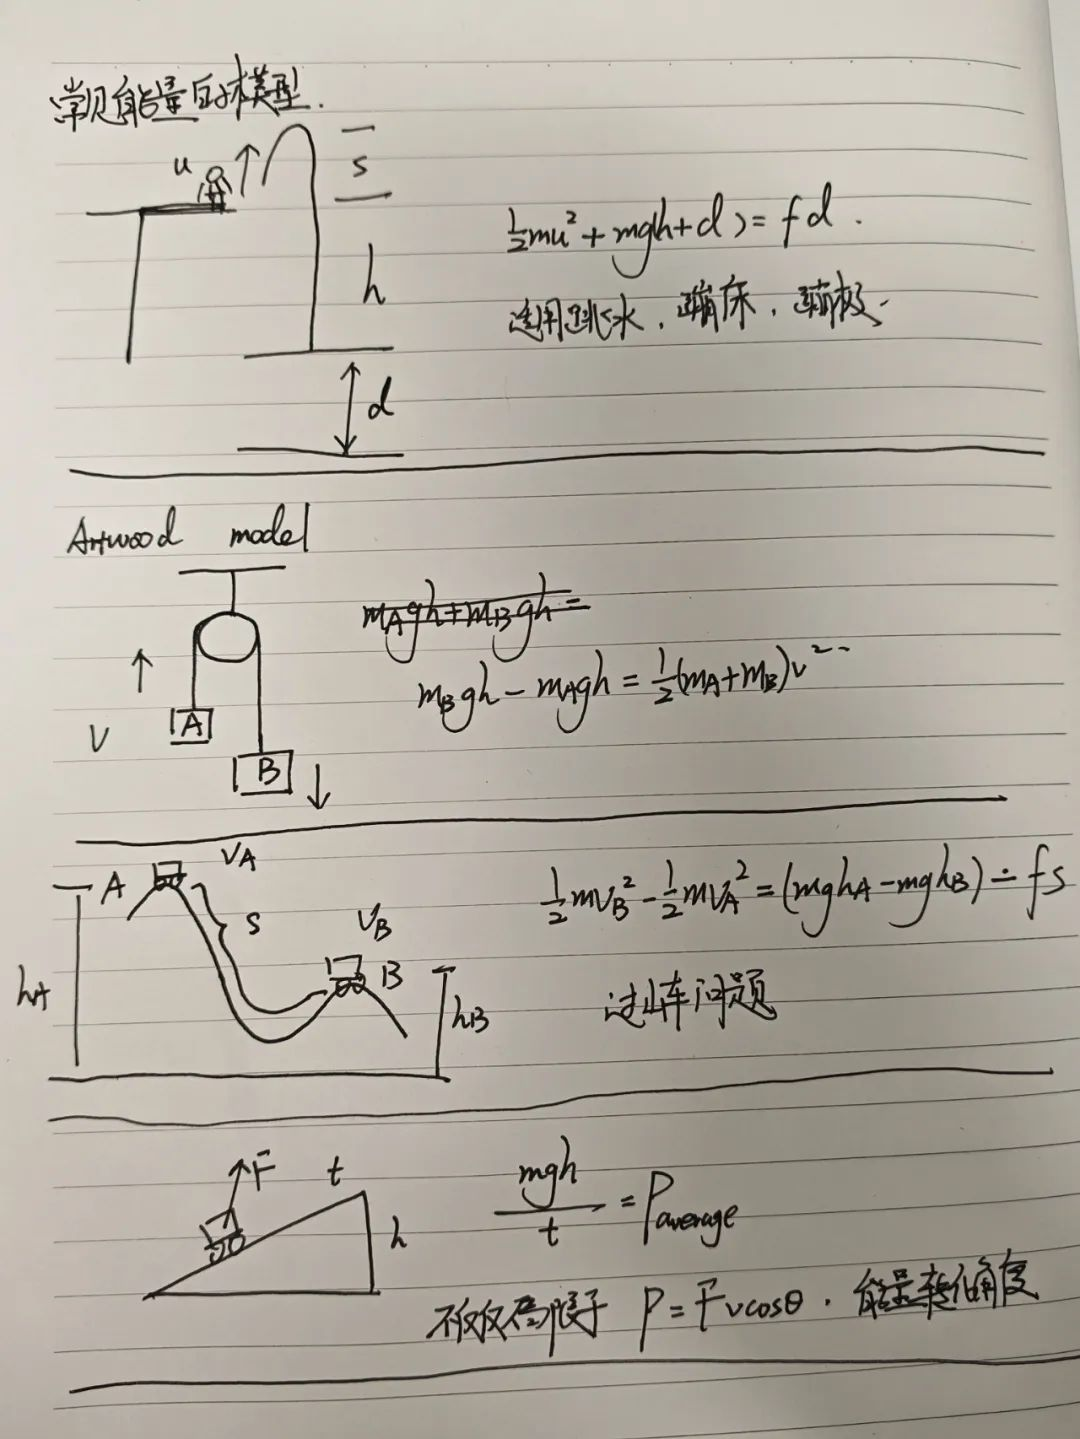 常见能量的模型.
u
s
h
½mu²+mgh+d)=fd.
适用跳水,蹦床,蹦极.
d
Attwood model
mAgh+mBgh=
mBgh-mAgh=½(mA+mB)v²
A
V
B
A
VA
S
VB
B
hA
hB
½mVB²-½mVA²=(mghA-mghB)-fs
过山车问题
F
t
h
mgh/t=Paverage
不仅仅局限于 P=Fvcosθ. 能量转化角度